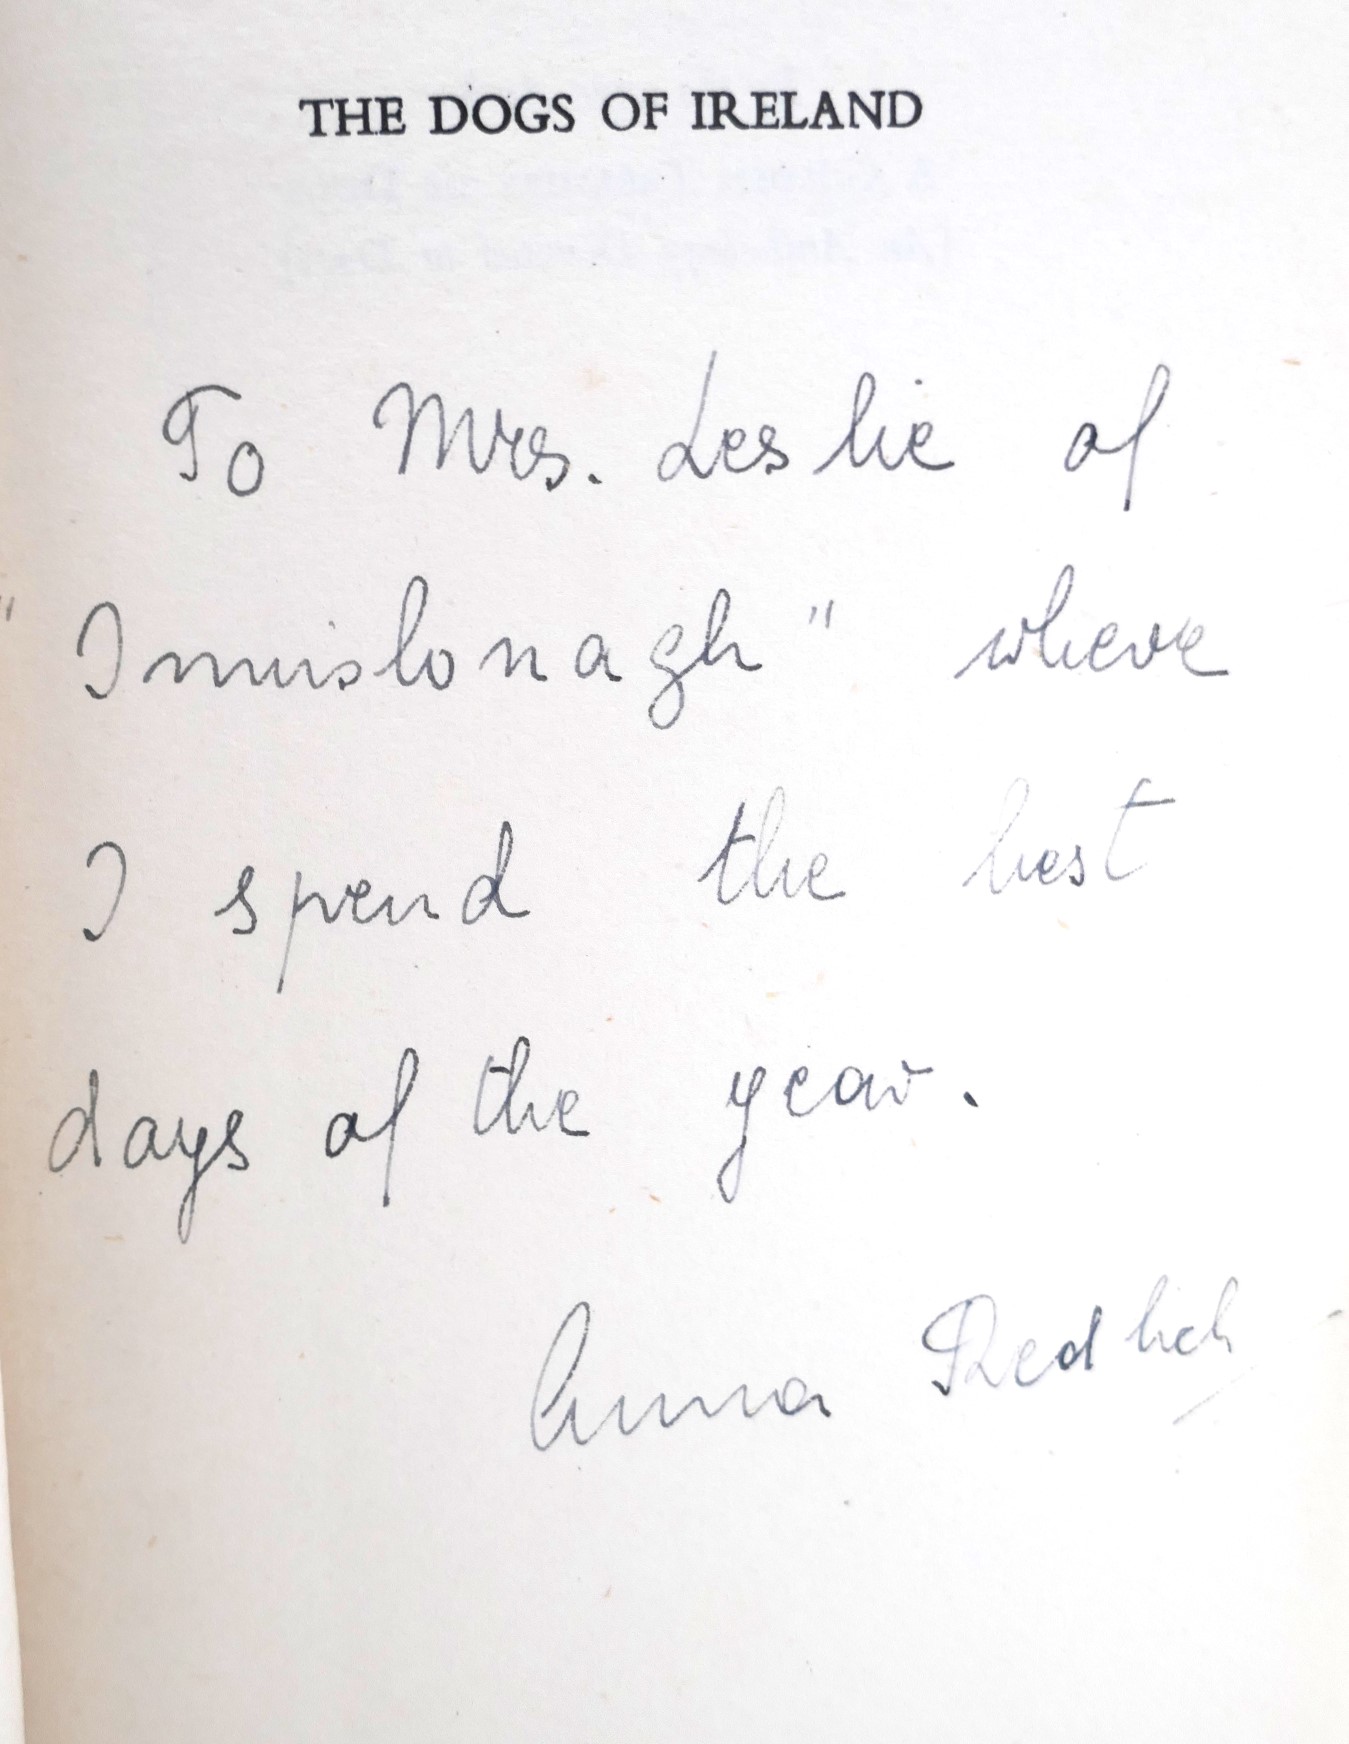 THE DOGS OF IRELAND
To Mrs. Leslie of
"Innislonagh" where
I spend the best
days of the year.
Anna Redlich